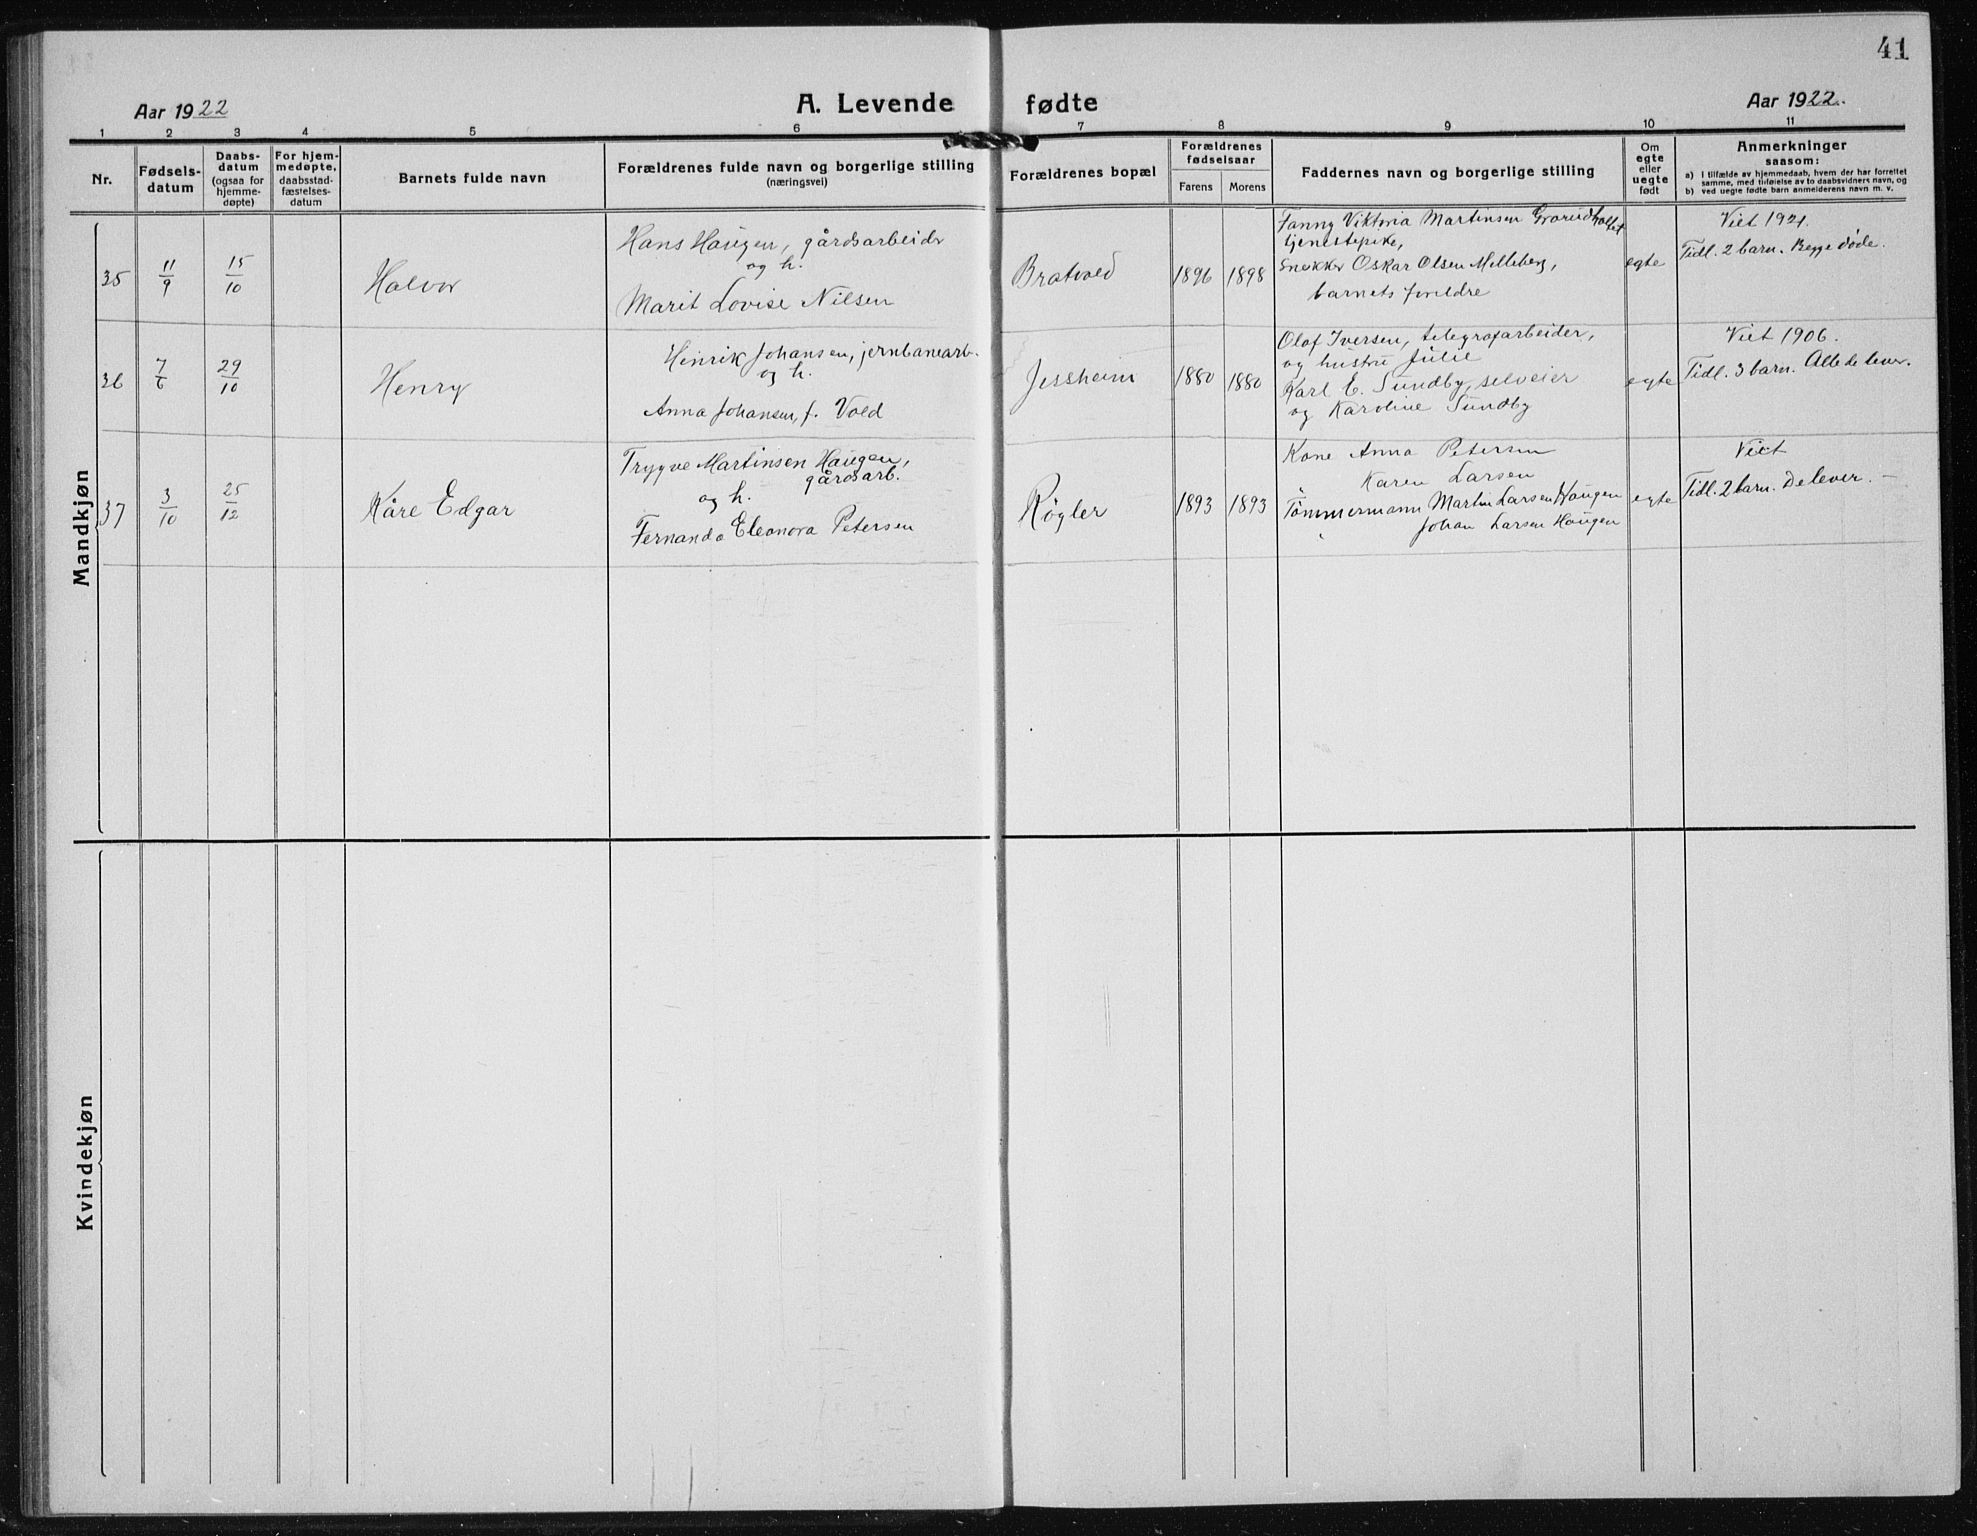 41
Aar 1922
A. Levende fødte
Aar 1922.
1 2 3 4 5 6 7 8 9 10 11
Nr.
Fødsels-
datum
Daabs-
datum
(ogsaa for
hjemme-
døpte)
For hjem-
medøpte,
daabsstad-
fæstelses-
datum
Barnets fulde navn
Forældrenes fulde navn og borgerlige stilling
(næringsvei)
Forældrenes bopæl
Forældrenes
fødselsaar
Farens Morens
Faddernes navn og borgerlige stilling
Om
egte
eller
uegte
født
Anmerkninger
saasom:
a) i tilfælde av hjemmedaab, hvem der har forrettet
samme, med tilføielse av to daabsvidners navn, og
b) ved uegte fødte barn anmelderens navn m. v.
Mandkjøn
35
11/9
15/10
Halvor
Hans Haugen, gårdsarbeider
og h.
Marit Lovise Nilsen
Bratvold
1896 1898
Fanny Viktoria Martinsen
tjenestepike,
Snekker Oskar Olsen Melleberg,
barnets foreldre
egte
Viet 1921.
Tidl. 2 barn. Begge døde.
36
7/6
29/10
Henry
Henrik Johansen, jernbanearb.
og h.
Anna Johansen, f. Vold
Jessheim
1880 1880
Olaf Iversen, telegrafarbeider,
og hustru Julie
Karl E. Sundby, selveier
og Karoline Sundby
egte
Viet 1906.
Tidl. 3 barn. Alle de lever.
37
3/10
25/12
Kåre Edgar
Trygve Martinsen Haugen,
gårdsarb.
og h.
Fernanda Eleonora Petersen
Røgler
1893 1893
Kone Anna Petersen
" Karen Larsen
Tømmermann Martin Larsen Haugen
" Johan Larsen Haugen
egte
Viet
Tidl. 2 barn. De lever. —
Kvindekjøn